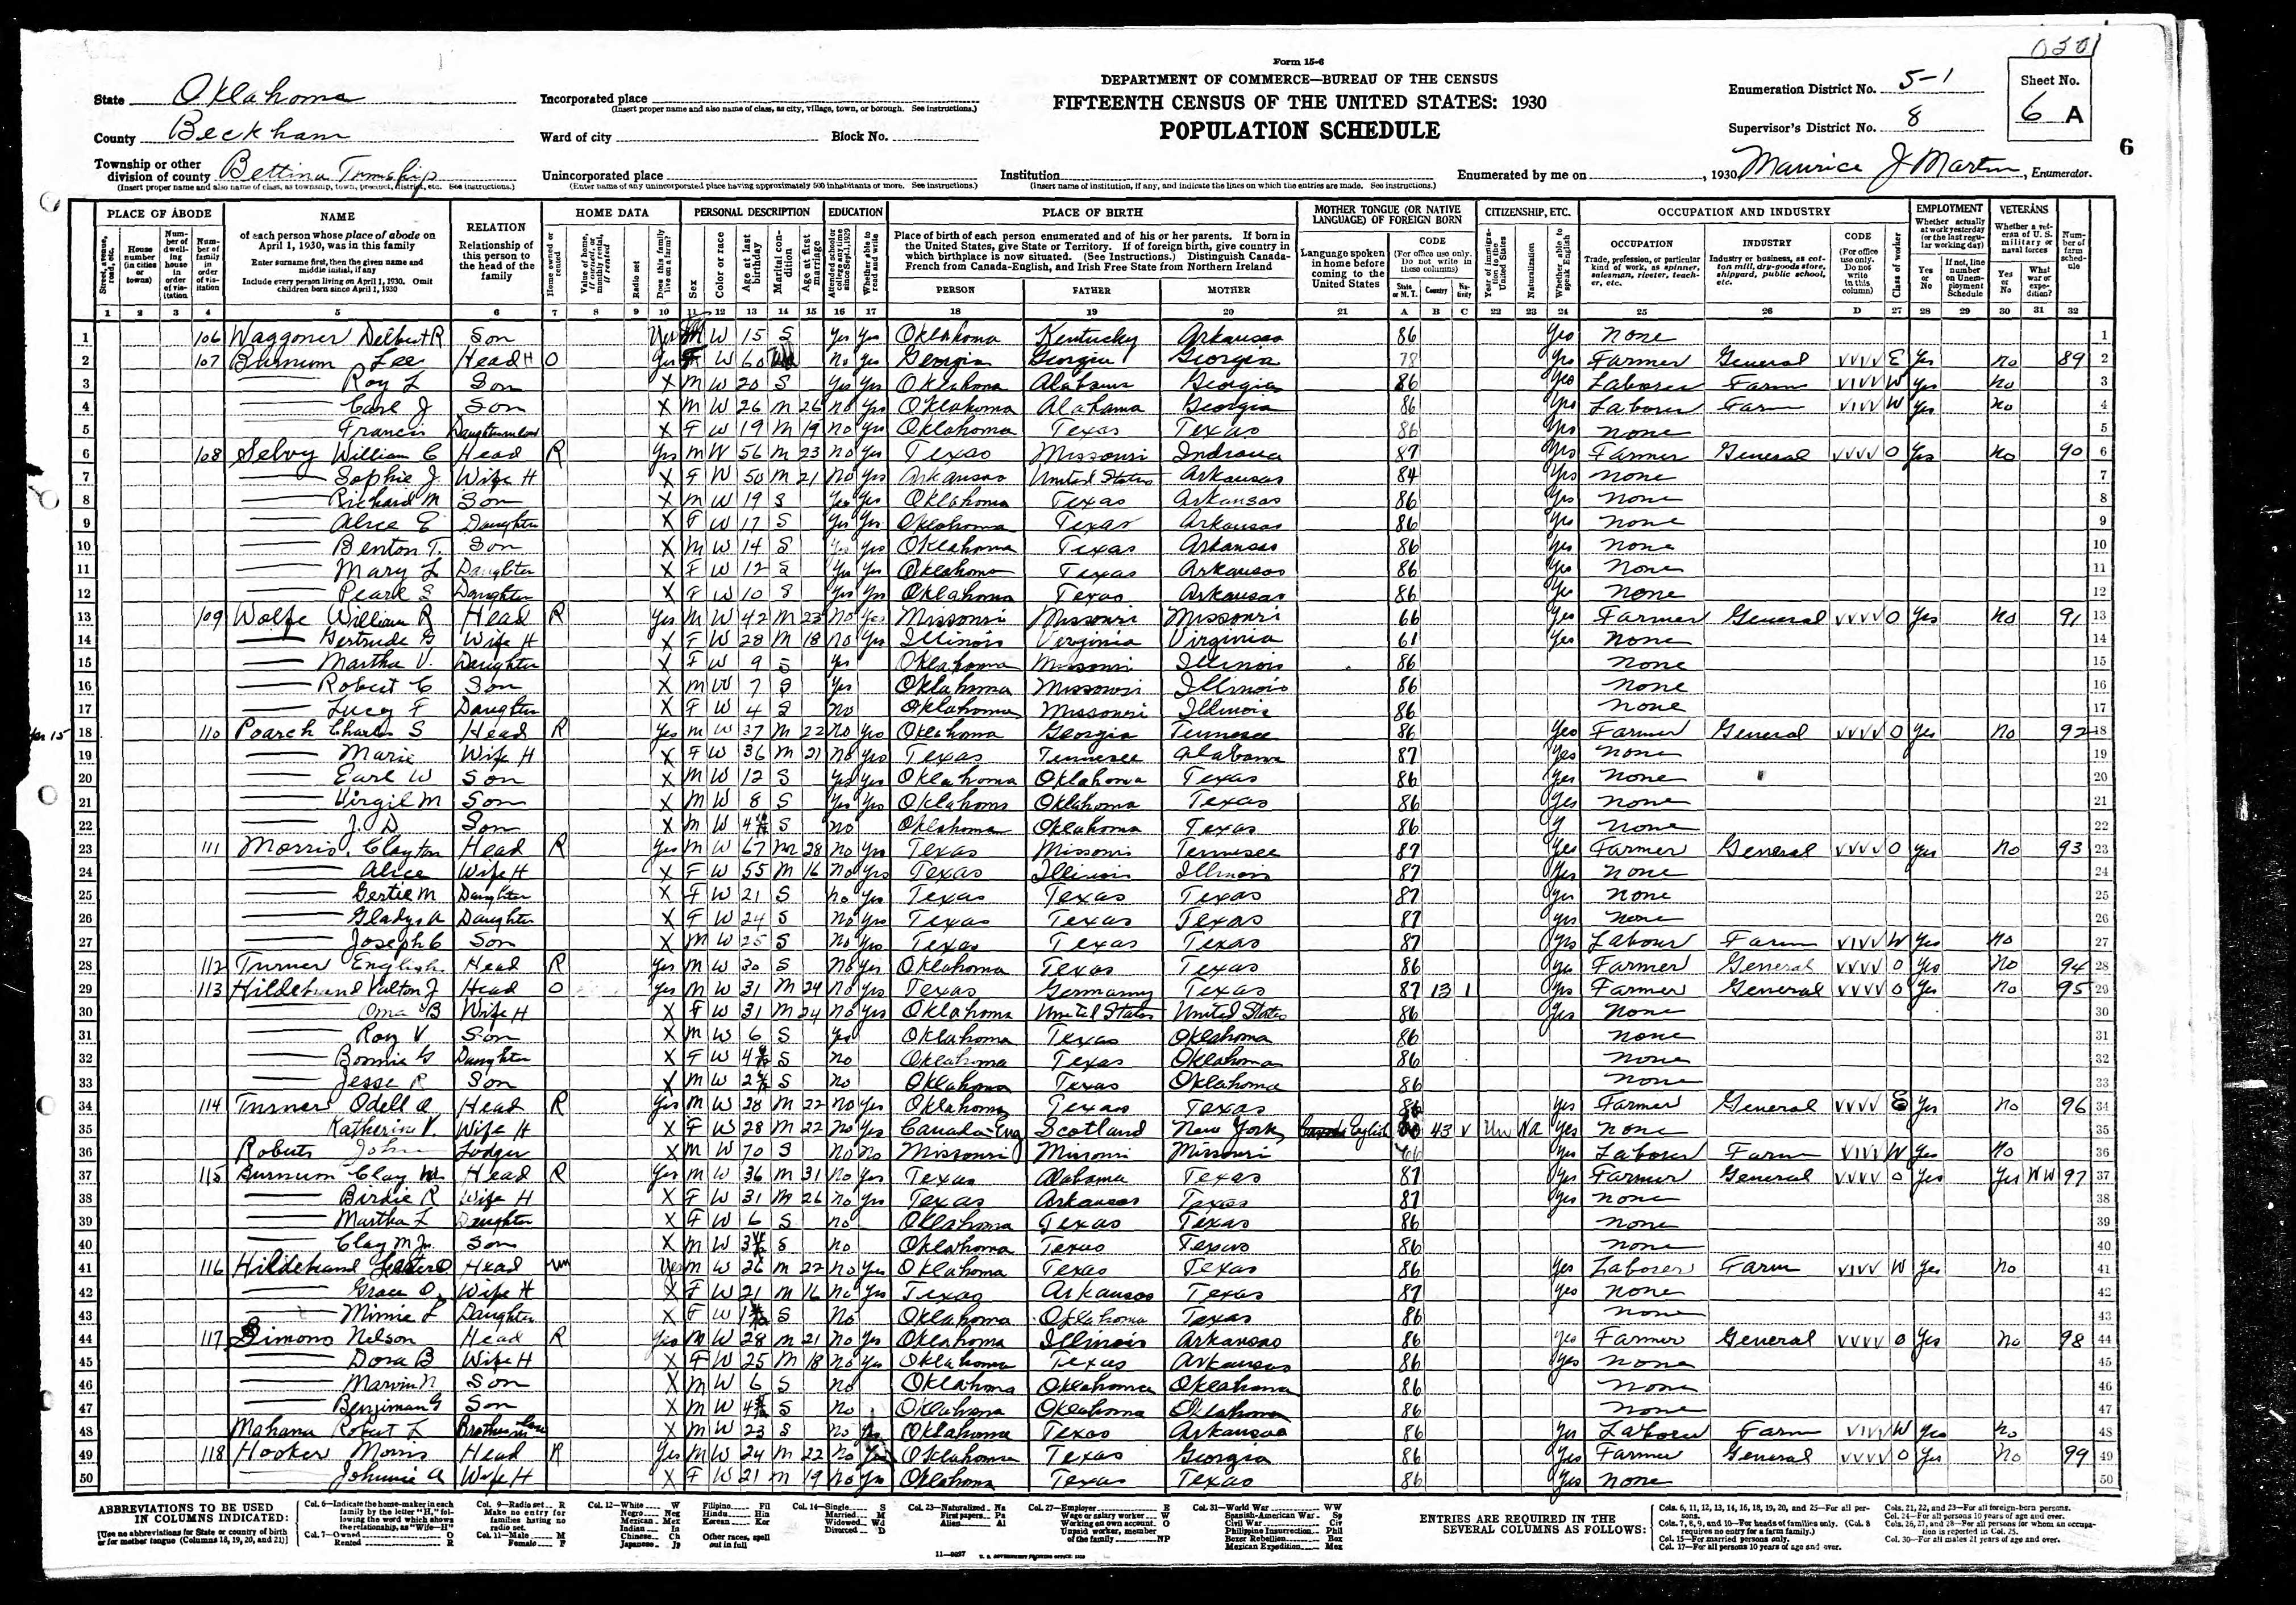 030
Form 15-6
DEPARTMENT OF COMMERCE—BUREAU OF THE CENSUS
FIFTEENTH CENSUS OF THE UNITED STATES: 1930
POPULATION SCHEDULE
State Oklahoma
County Beckham
Township or other division of county Bettina Township
(Insert proper name and also name of class, as township, town, precinct, district, etc. See instructions.)
Incorporated place
(Insert proper name and also name of class, as city, village, town, or borough. See instructions.)
Ward of city Block No.
Unincorporated place
(Enter name of any unincorporated place having approximately 500 inhabitants or more. See instructions.)
Institution
(Insert name of institution, if any, and indicate the lines on which the entries are made. See instructions.)
Enumeration District No. 5-1
Supervisor's District No. 8
Sheet No. 6 A
6
Enumerated by me on , 1930, Maurice J Martin, Enumerator.
PLACE OF ABODE NAME RELATION HOME DATA PERSONAL DESCRIPTION EDUCATION PLACE OF BIRTH MOTHER TONGUE (OR NATIVE LANGUAGE) OF FOREIGN BORN CITIZENSHIP, ETC. OCCUPATION AND INDUSTRY EMPLOYMENT VETERANS
PERSON FATHER MOTHER
1 2 3 4 5 6 7 8 9 10 11 12 13 14 15 16 17 18 19 20 21 A B C 22 23 24 25 26 D 27 28 29 30 31 32
1 106 Waggoner Delbert R Son Yes M W 15 S Yes Yes Oklahoma Kentucky Arkansas 86 Yes None 1
2 107 Burnum Lee Head H O Yes F W 60 No Yes Georgia Georgia Georgia 78 Yes Farmer General VVVV E Yes No 89 2
3 Roy L Son X M W 20 S Yes Yes Oklahoma Alabama Georgia 86 Yes Laborer Farm VIVV W Yes No 3
4 Carl J Son X M W 26 M 26 No Yes Oklahoma Alabama Georgia 86 Yes Laborer Farm VIVV W Yes No 4
5 Francis Daughterinlaw X F W 19 M 19 No Yes Oklahoma Texas Texas 86 Yes None 5
6 108 Selvy William C Head R Yes M W 56 M 23 No Yes Texas Missouri Indiana 87 Yes Farmer General VVVV O Yes No 90 6
7 Sophie J. Wife H X F W 50 M 21 No Yes Arkansas United States Arkansas 84 Yes None 7
8 Richard M Son X M W 19 S Yes Yes Oklahoma Texas Arkansas 86 Yes None 8
9 Alice E Daughter X F W 17 S Yes Yes Oklahoma Texas Arkansas 86 Yes None 9
10 Benton T. Son X M W 14 S Yes Yes Oklahoma Texas Arkansas 86 Yes None 10
11 Mary L Daughter X F W 12 S Yes Yes Oklahoma Texas Arkansas 86 Yes None 11
12 Pearl S Daughter X F W 10 S Yes Yes Oklahoma Texas Arkansas 86 Yes None 12
13 109 Wolfe William R Head R Yes M W 42 M 23 No Yes Missouri Missouri Missouri 66 Yes Farmer General VVVV O Yes No 91 13
14 Gertrude G Wife H X F W 28 M 18 No Yes Illinois Virginia Virginia 61 Yes None 14
15 Martha V. Daughter X F W 9 S Yes Oklahoma Missouri Illinois 86 None 15
16 Robert C Son X M W 7 S Yes Oklahoma Missouri Illinois 86 None 16
17 Lucy F Daughter X F W 4 S No Oklahoma Missouri Illinois 86 None 17
18 110 Poarch Charles S Head R Yes M W 37 M 22 No Yes Oklahoma Georgia Tennesee 86 Yes Farmer General VVVV O Yes No 92 18
19 Marie Wife H X F W 36 M 21 No Yes Texas Tennesee Alabama 87 Yes None 19
20 Earl W Son X M W 12 S Yes Yes Oklahoma Oklahoma Texas 86 Yes None 20
21 Virgil M Son X M W 8 S Yes Yes Oklahoma Oklahoma Texas 86 Yes None 21
22 J. D Son X M W 4 S No Oklahoma Oklahoma Texas 86 Y None 22
23 111 Morris, Clayton Head R Yes M W 67 M 28 No Yes Texas Missouri Tennesee 87 Yes Farmer General VVVV O Yes No 93 23
24 Alice Wife H X F W 55 M 16 No Yes Texas Illinois Illinois 87 Yes None 24
25 Gertie M Daughter X F W 21 S No Yes Texas Texas Texas 87 Yes None 25
26 Gladys A Daughter X F W 24 S No Yes Texas Texas Texas 87 Yes None 26
27 Joseph C Son X M W 25 S No Yes Texas Texas Texas 87 Yes Labour Farm VIVV W Yes No 27
28 112 Turner English Head R Yes M W 30 S No Yes Oklahoma Texas Texas 86 Yes Farmer General VVVV O Yes No 94 28
29 113 Hildebrand Valton J Head O Yes M W 31 M 24 No Yes Texas Germany Texas 87 13 1 Yes Farmer General VVVV O Yes No 95 29
30 Oma B Wife H X F W 31 M 24 No Yes Oklahoma United States United States 86 Yes None 30
31 Roy V Son X M W 6 S Yes Oklahoma Texas Oklahoma 86 None 31
32 Bonnie G Daughter X F W 4 S No Oklahoma Texas Oklahoma 86 None 32
33 Jesse R Son X M W 2 S No Oklahoma Texas Oklahoma 86 None 33
34 114 Turner Odell A Head R Yes M W 28 M 22 No Yes Oklahoma Texas Texas 86 Yes Farmer General VVVV E Yes No 96 34
35 Katherine V. Wife H X F W 28 M 22 No Yes Canada-Eng Scotland New York English 43 V Un Na Yes None 35
36 Roberts John Lodger X M W 70 S No No Missouri Missouri Missouri 66 Yes Laborer Farm VIVV W Yes No 36
37 115 Burnum Clay M Head R Yes M W 36 M 31 No Yes Texas Alabama Texas 87 Yes Farmer General VVVV O Yes Yes WW 97 37
38 Birdie R Wife H X F W 31 M 26 No Yes Texas Arkansas Texas 87 Yes None 38
39 Martha L Daughter X F W 6 S No Oklahoma Texas Texas 86 None 39
40 Clay M Jr. Son X M W 3 S No Oklahoma Texas Texas 86 None 40
41 116 Hildebrand Head Yes M W 26 M 22 No Yes Oklahoma Texas Texas 86 Yes Laborer Farm VIVV W Yes No 41
42 Grace O. Wife H X F W 21 M 16 No Yes Texas Arkansas Texas 87 Yes None 42
43 Minnie L Daughter X F W 1 S No Oklahoma Oklahoma Texas 86 None 43
44 117 Simons Nelson Head R Yes M W 28 M 21 No Yes Oklahoma Illinois Arkansas 86 Yes Farmer General VVVV O Yes No 98 44
45 Dora B Wife H X F W 25 M 18 No Yes Oklahoma Texas Arkansas 86 Yes None 45
46 Marvin N Son X M W 6 S No Oklahoma Oklahoma Oklahoma 86 None 46
47 Benjiman G Son X M W 4 S No Oklahoma Oklahoma Oklahoma 86 None 47
48 Mahana Robert L Brotherinlaw X M W 23 S No Yes Oklahoma Texas Arkansas 86 Yes Laborer Farm VIVV W Yes No 48
49 118 Hooker Morris Head R Yes M W 24 M 22 No Yes Oklahoma Texas Georgia 86 Yes Farmer General VVVV O Yes No 99 49
50 Johnnie A Wife H X F W 21 M 19 No Yes Oklahoma Texas Texas 86 Yes None 50
ABBREVIATIONS TO BE USED IN COLUMNS INDICATED:
ENTRIES ARE REQUIRED IN THE SEVERAL COLUMNS AS FOLLOWS: